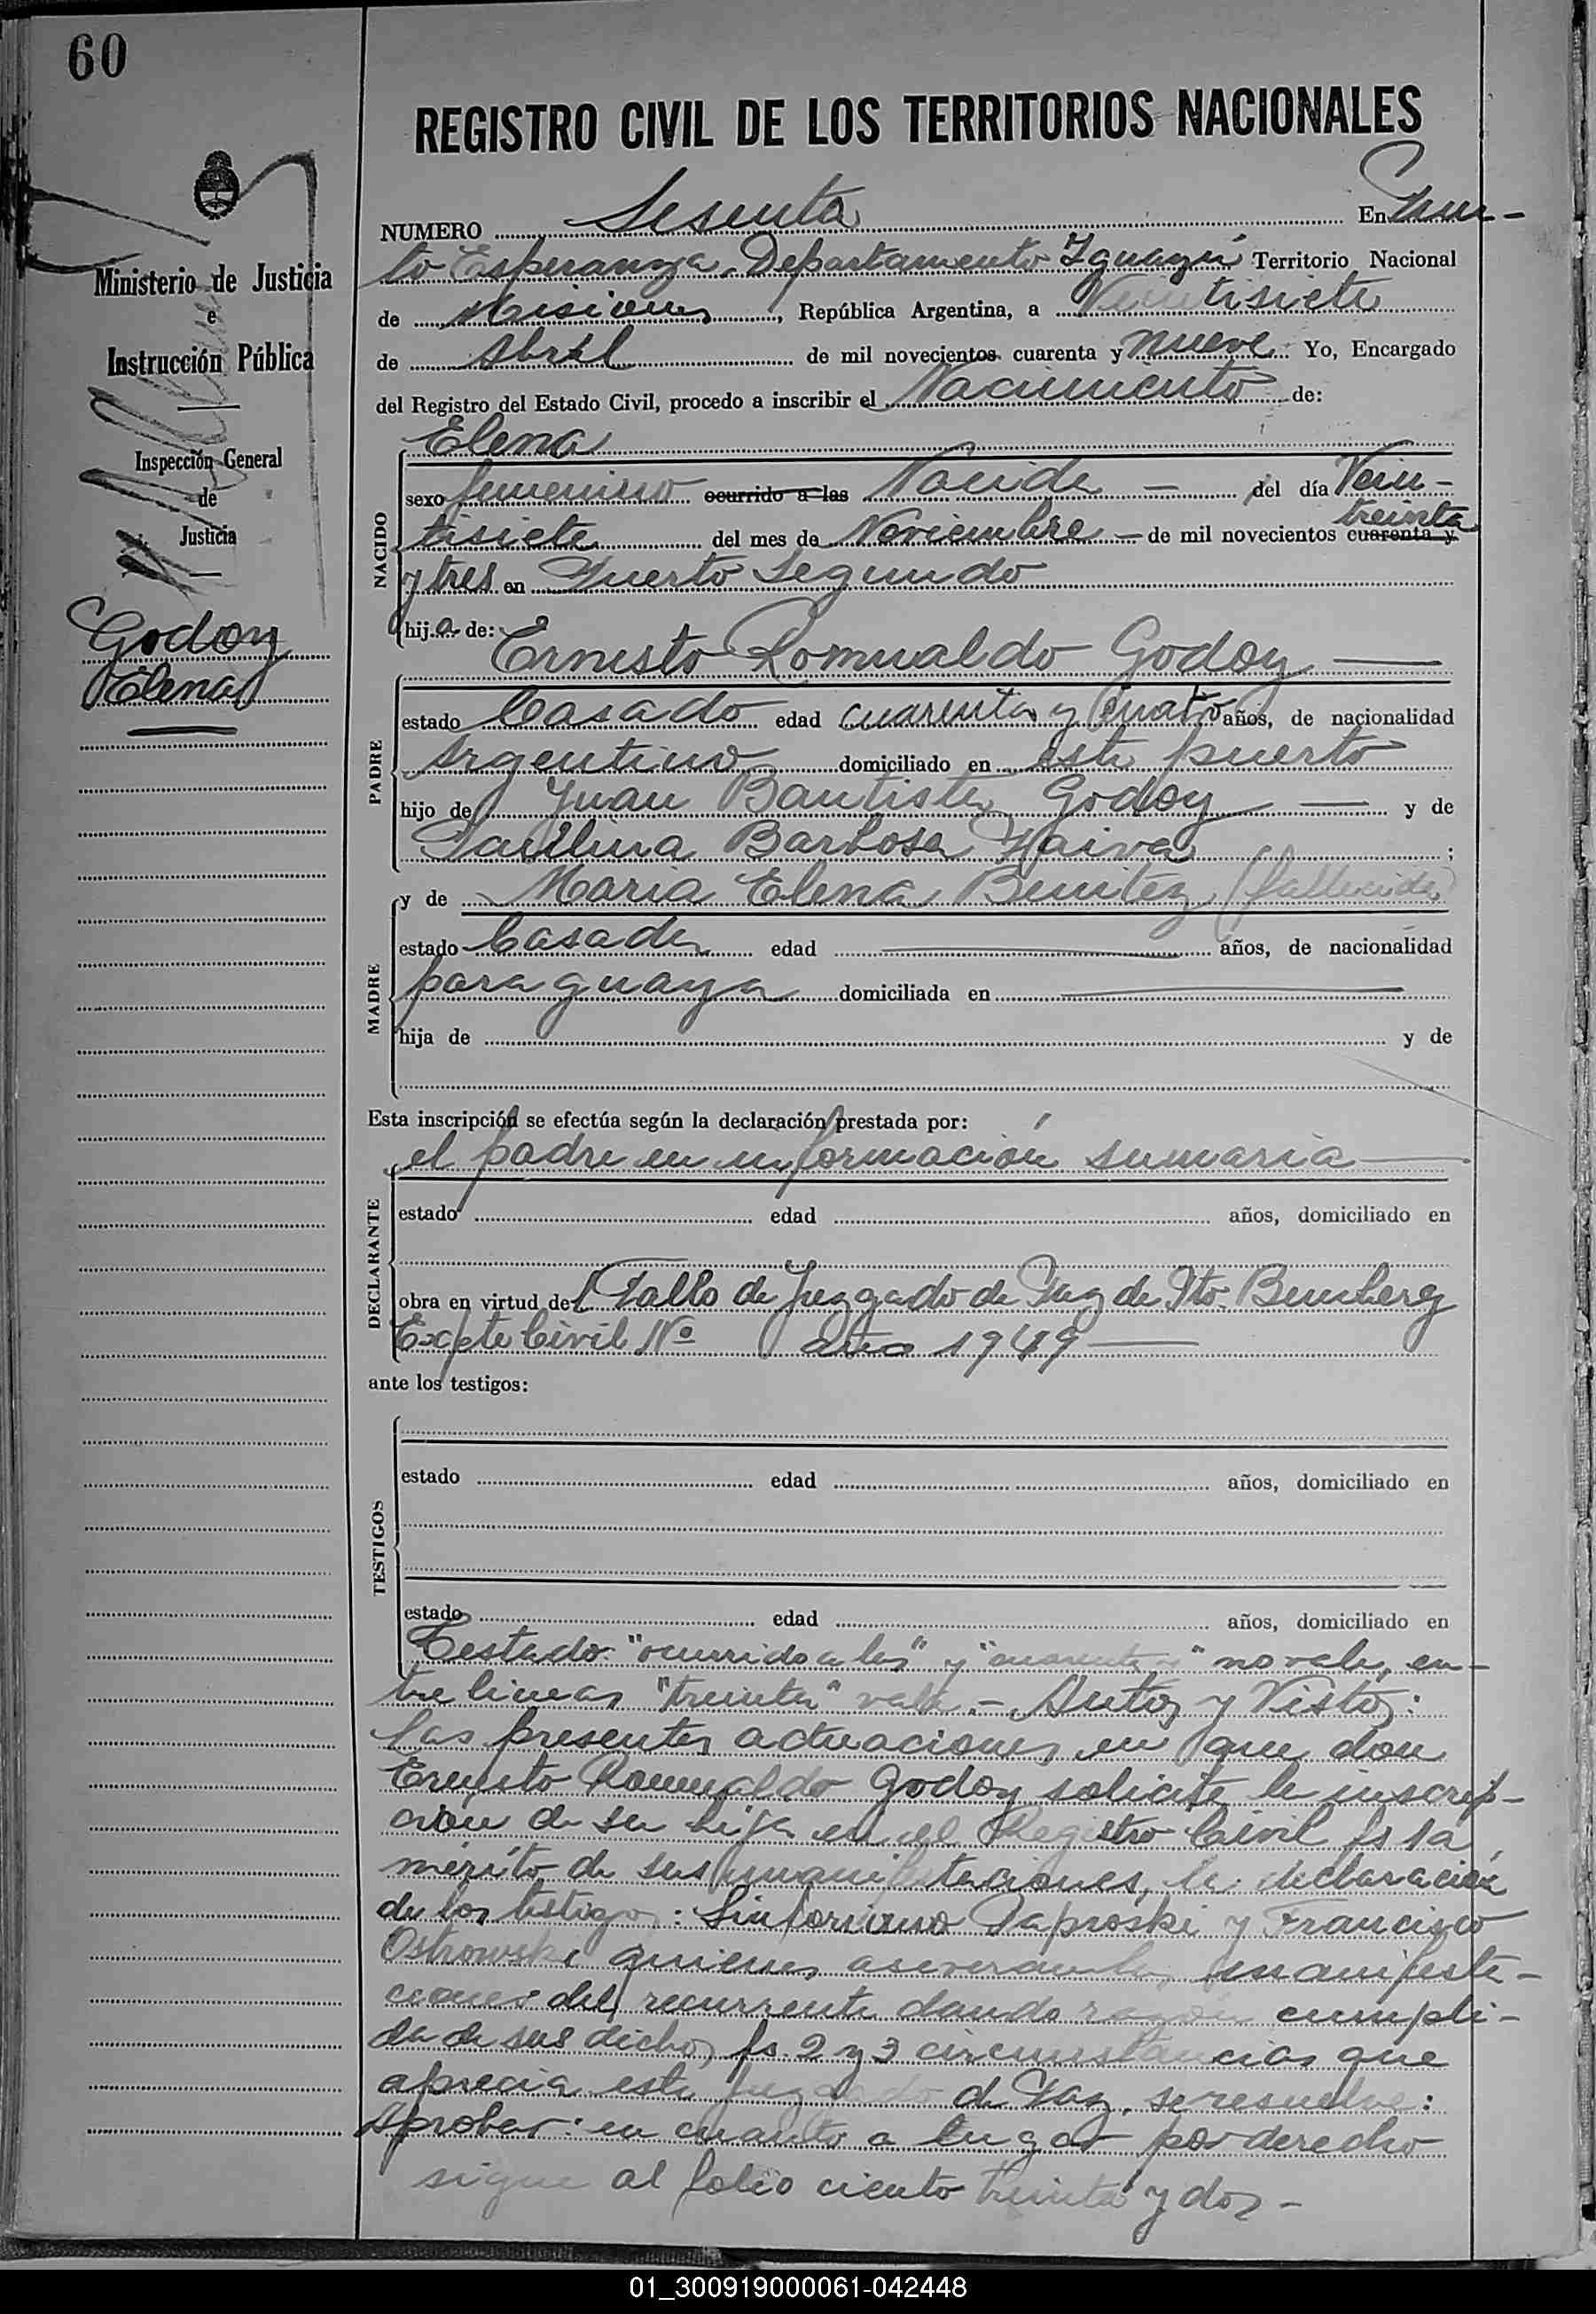 60
REGISTRO CIVIL DE LOS TERRITORIOS NACIONALES
Ministerio de Justicia
e
Instrucción Pública
Inspección General
de
Justicia
Godoy
Elena
NUMERO Sesenta En Puer-
to Esperanza, Departamento Iguazú Territorio Nacional
de Misiones, República Argentina, a Veintisiete
de Abril de mil novecientos cuarenta y nueve Yo, Encargado
del Registro del Estado Civil, procedo a inscribir el Nacimiento de:
Elena
NACIDO
sexo femenino ocurrido a las Nacida — del día Vein-
treinta
tisiete del mes de Noviembre — de mil novecientos cuarenta y
y tres en Puerto Segundo
hija de:
Ernesto Romualdo Godoy —
PADRE
estado Casado edad cuarenta y cuatro años, de nacionalidad
Argentino domiciliado en este puerto
hijo de Juan Bautista Godoy — y de
Paulina Barbosa Paiva ;
y de Maria Elena Benitez (fallecida)
MADRE
estado Casada edad — años, de nacionalidad
paraguaya domiciliada en —
hija de y de
Esta inscripción se efectúa según la declaración prestada por:
el padre en información sumaria —
DECLARANTE
estado edad años, domiciliado en
obra en virtud del Fallo de Juzgado de Paz de Pto. Bemberg
Expte Civil Nº año 1949 —
ante los testigos:
TESTIGOS
estado edad años, domiciliado en
estado edad años, domiciliado en
Testado: "ocurrido a las" y "cuarenta y" no vale, en-
tre lineas "treinta" vale.- Autos y Vistos:
las presentes actuaciones en que don
Ernesto Romualdo Godoy solicita la inscrip-
ción de su hija en el Registro Civil fs 1a
mérito de sus manifestaciones, la declaración
de los testigos: Sinforiano Paproski y Francisco
Ostrowski quienes aseveran las manifesta-
ciones del recurrente dando razón cumpli-
da de sus dichos fs. 2 y 3 circunstancias que
aprecia este Juzgado de Paz, se resuelve:
Aprobar: en cuanto a lugar por derecho
sigue al folio ciento treinta y dos -
01_300919000061-042448